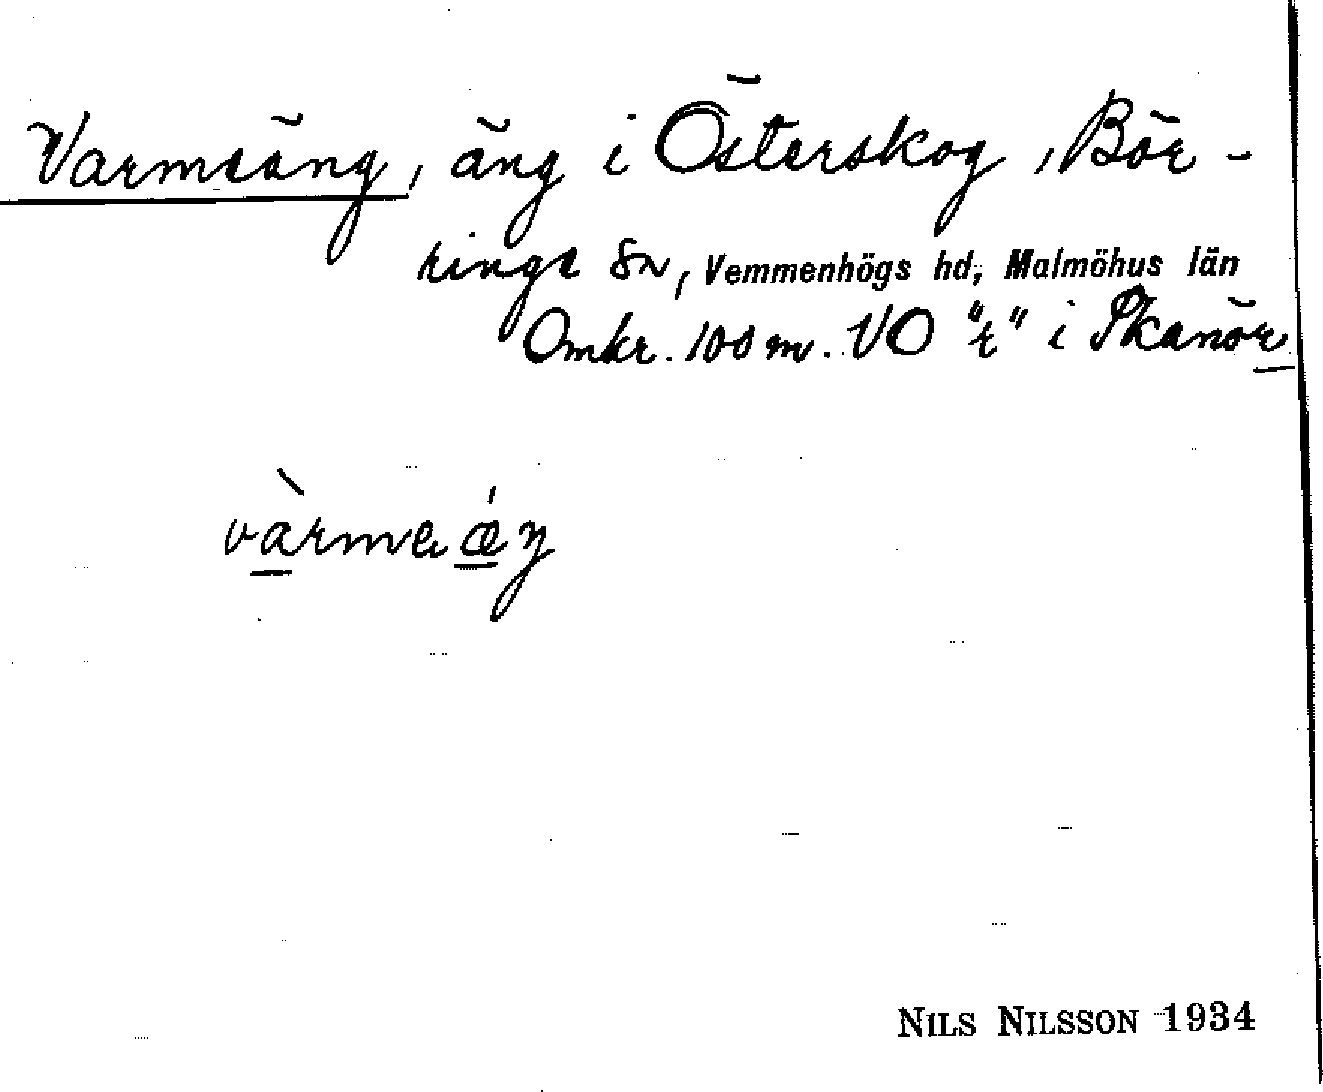 Varmeäng, äng i Österskog, Bör-
ringe sn, Vemmenhögs hd, Malmöhus län
Omkr. 100 m. VO "r" i Skanör
vàrmaǽŋ
NILS NILSSON 1934